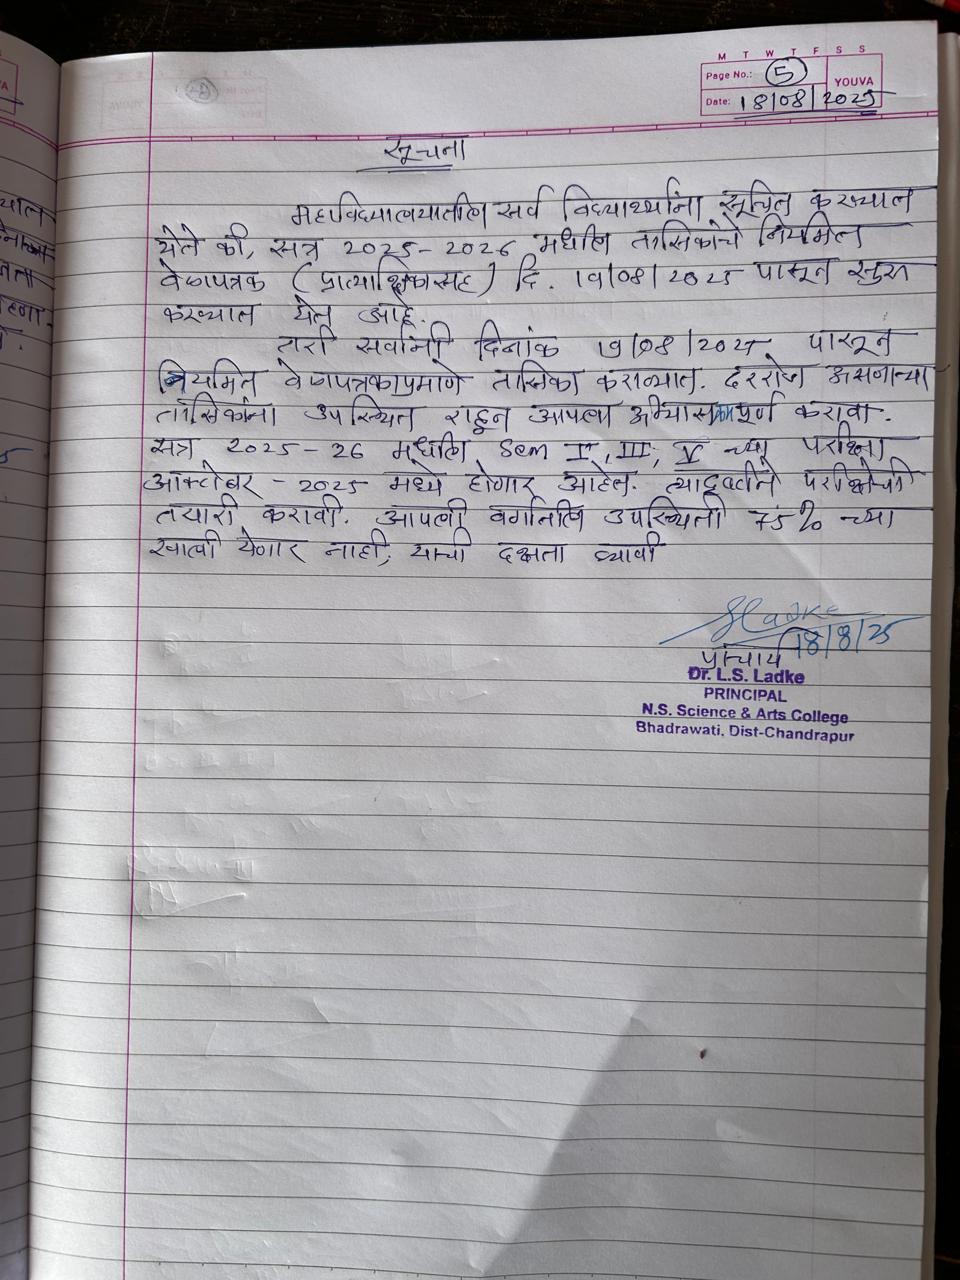 M T W T F S S
Page No.: 5
YOUVA
Date: 18/08/2025
सूचना
महाविद्यालयातील सर्व विद्यार्थ्यांना सूचित करण्यात
येते की, सत्र 2025-2026 मधील तासिकांचे नियमित
वेळापत्रक (प्रात्यक्षिकासह) दि. 19/08/2025 पासून सुरु
करण्यात येत आहे.
तरी सर्वांनी दिनांक 19/08/2025 पासून
नियमित वेळापत्रकाप्रमाणे तासिका कराव्यात. दररोज असणाऱ्या
तासिकांना उपस्थित राहून आपला अभ्यासक्रम पूर्ण करावा.
सत्र 2025-26 मधील Sem I, III, V च्या परीक्षा
ऑक्टोबर - 2025 मध्ये होणार आहेत. त्यादृष्टीने परीक्षेची
तयारी करावी. आपली वर्गातील उपस्थिती 75% च्या
खाली येणार नाही, याची दक्षता घ्यावी
SLadke
18/8/25
प्राचार्य
Dr. L.S. Ladke
PRINCIPAL
N.S. Science & Arts College
Bhadrawati, Dist-Chandrapur